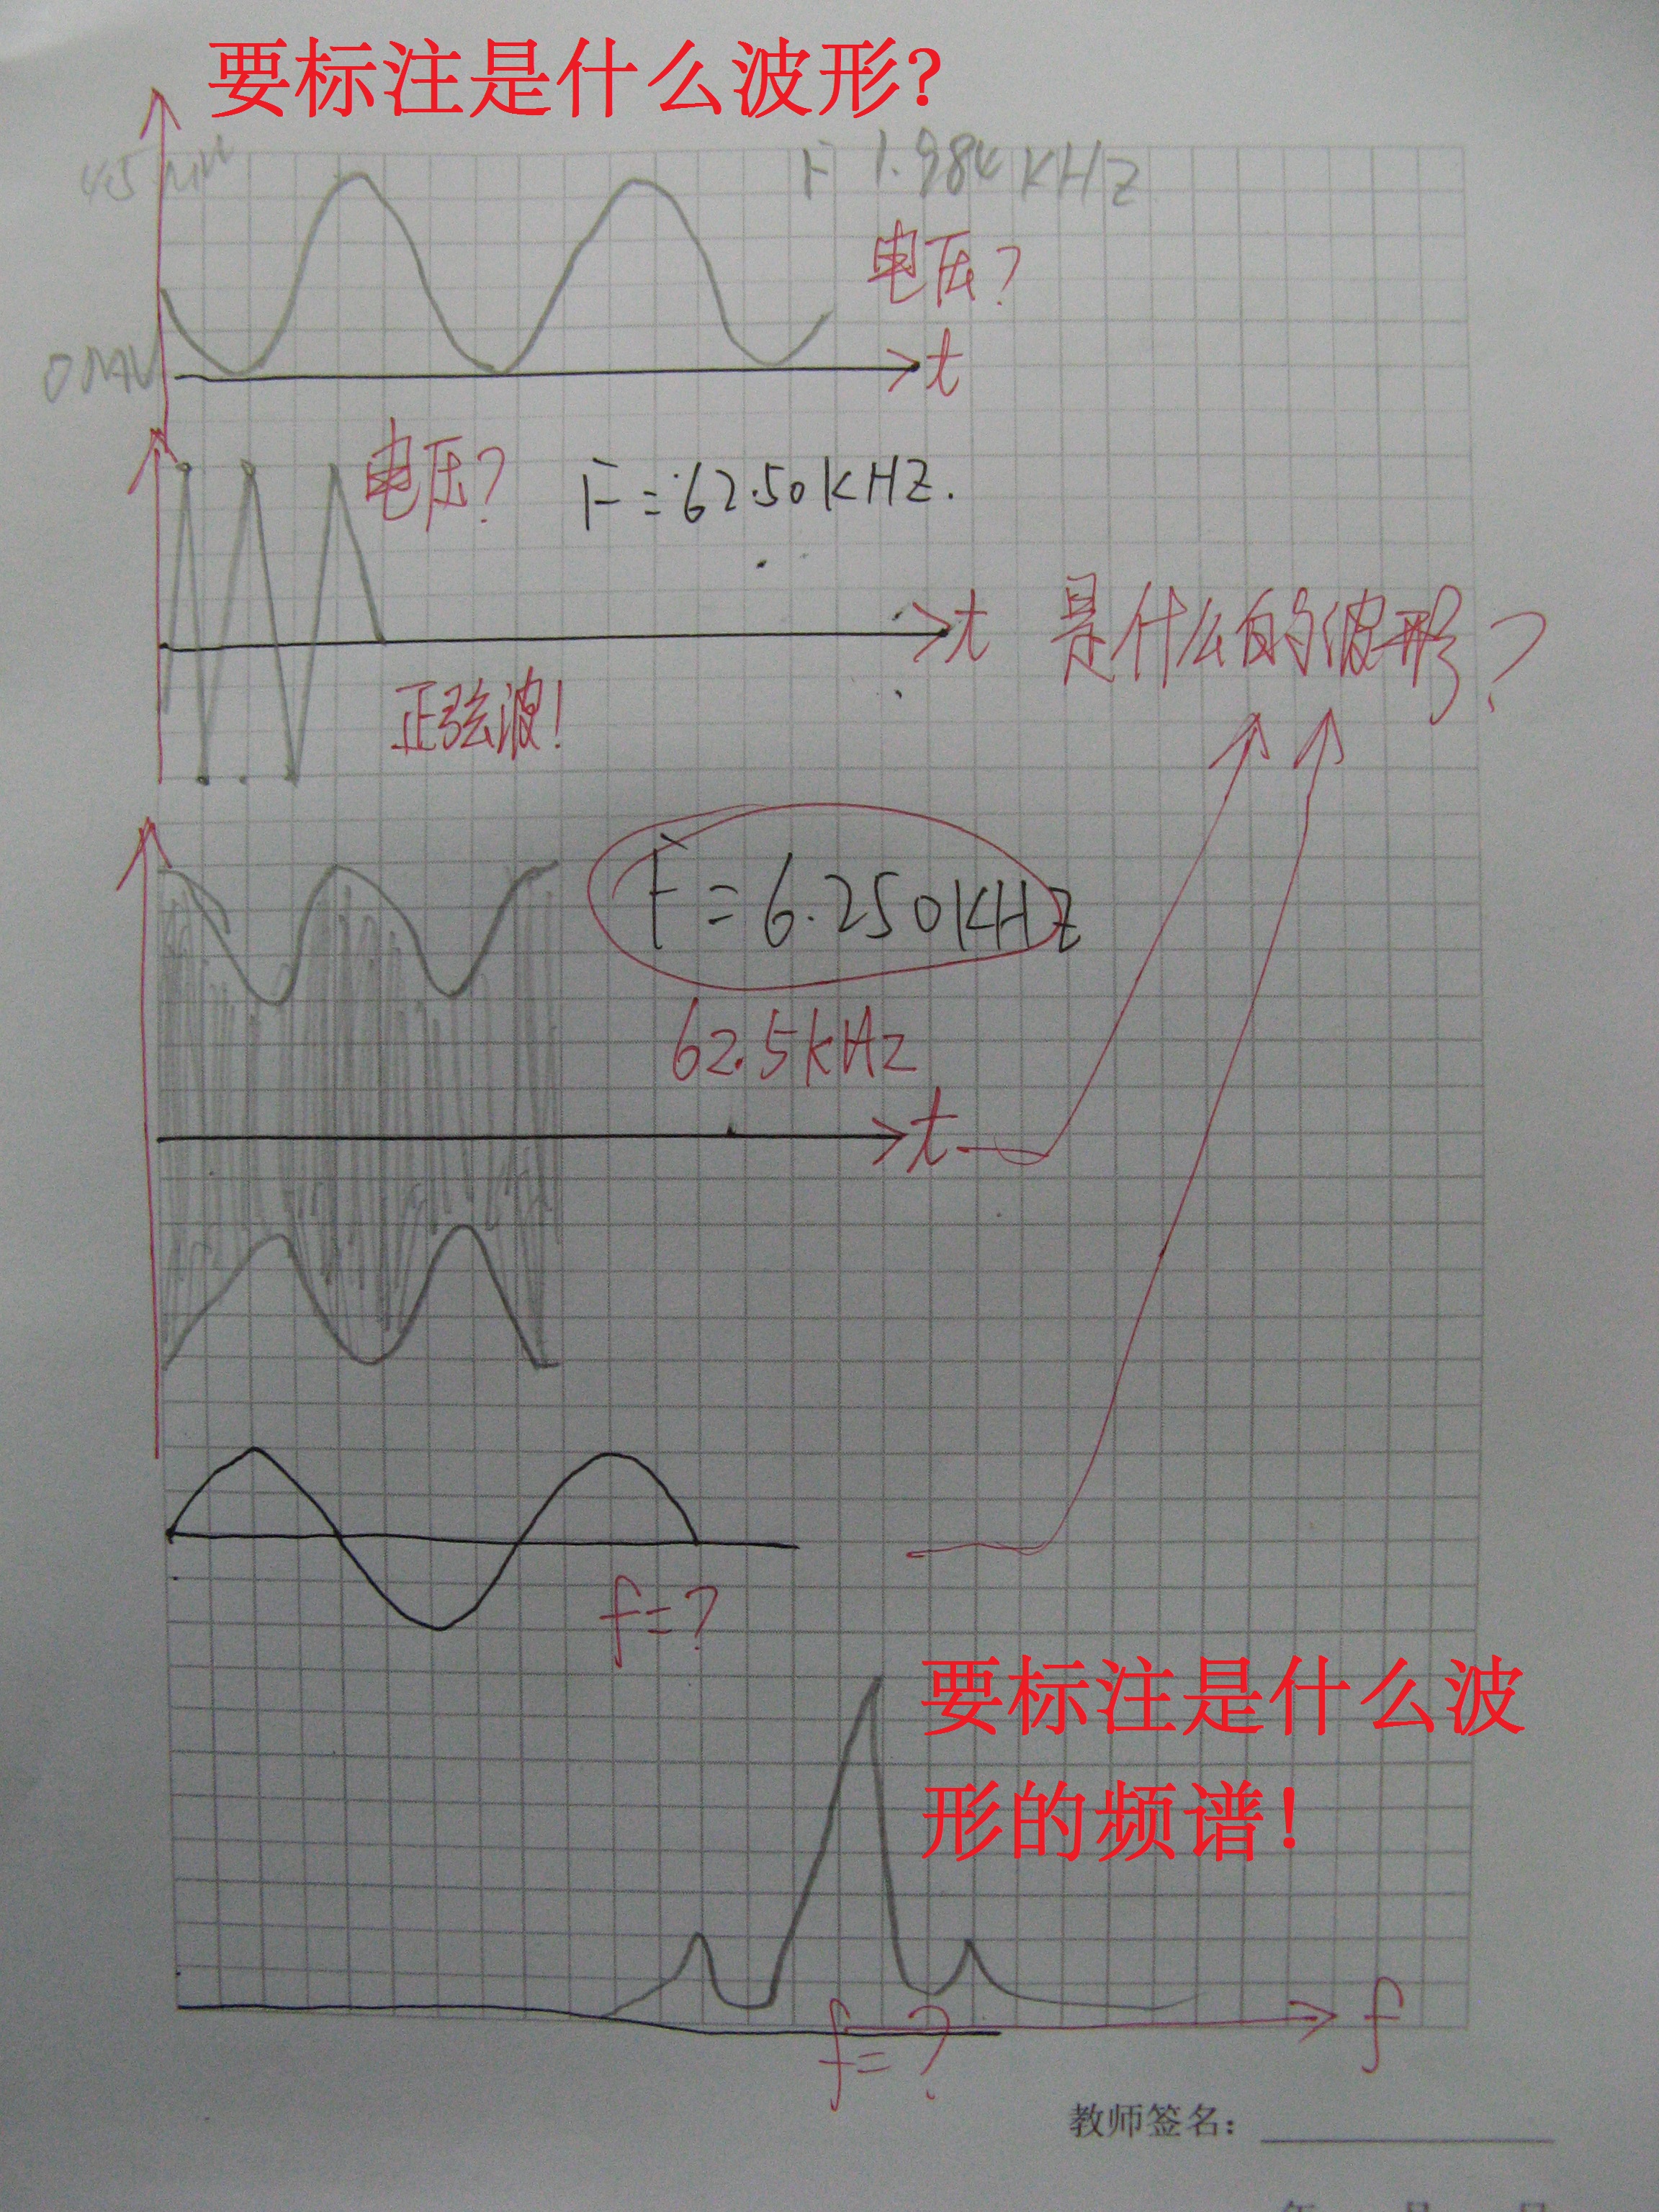 要标注是什么波形?
45 mV
F 1.984KHZ
电压?
0 mV
t
电压?
F=62.50KHZ.
t
是什么的波形?
正弦波!
F=6.250KHZ
62.5kHz
t
f=?
要标注是什么波
形的频谱!
f
f=?
教师签名: